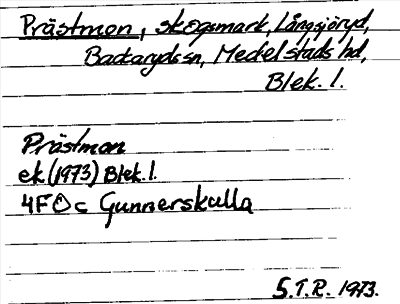 Prästmon, skogsmark, Långsjöryd,
Backarydssn, Medelstads hd,
Blek. l.
Prästmon
ek (1973) Blek. l.
4F0c Gunnerskulla
S.T.R. 1973.